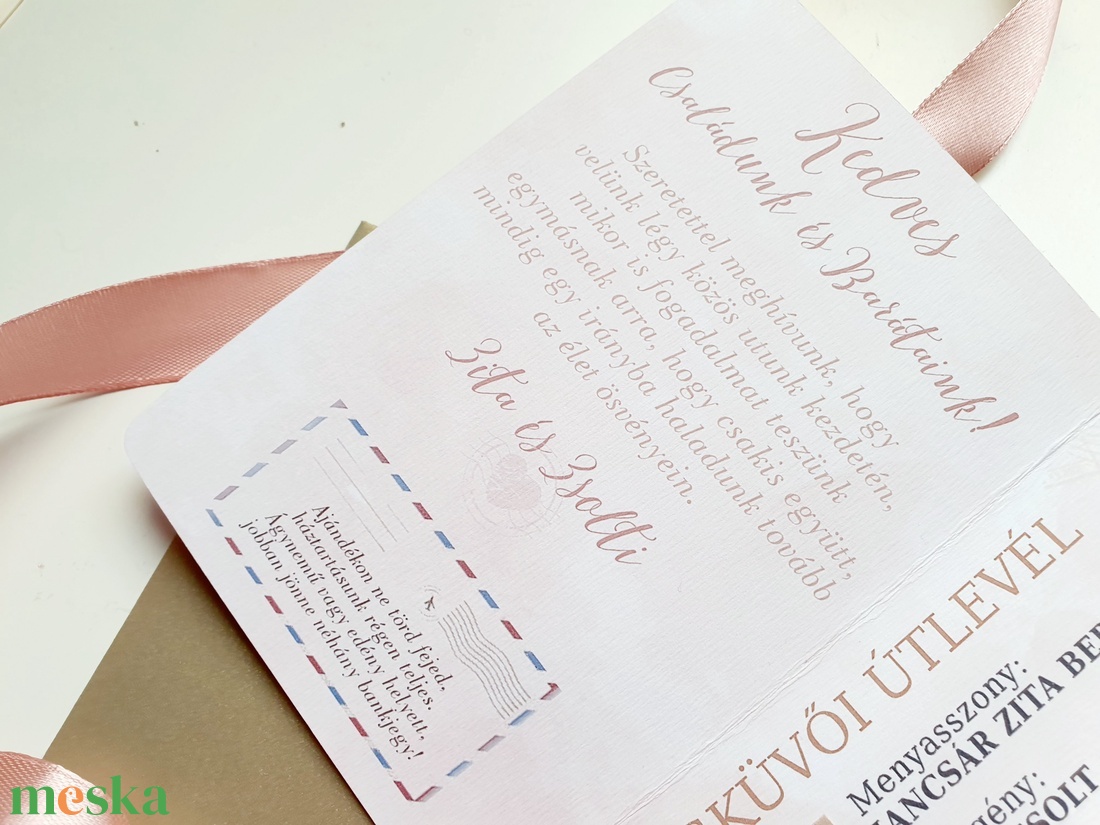 Kedves
Családunk és Barátaink!
Szeretettel meghívunk, hogy
velünk légy közös utunk kezdetén,
mikor is fogadalmat teszünk
egymásnak arra, hogy csakis együtt,
mindig egy irányba haladunk tovább
az élet ösvényein.
Zita és Zsolti
Ajándékon ne törd fejed,
háztartásunk régen teljes.
Ágynemű vagy edény helyett,
jobban jönne néhány bankjegy!
KÜVŐI ÚTLEVÉL
Menyasszony:
ANCSÁR ZITA BE
meska